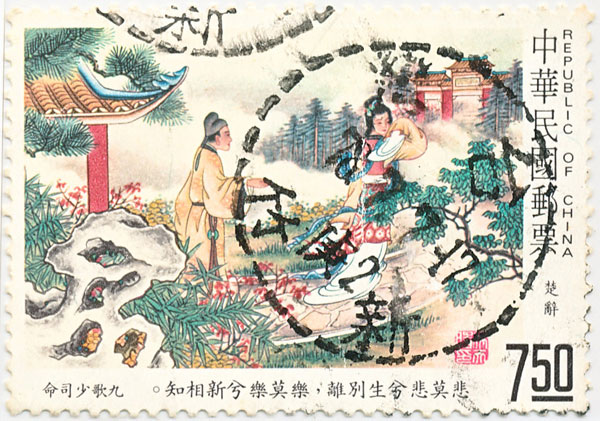 中華民國郵票
REPUBLIC OF CHINA
楚辭
悲莫悲兮生別離，樂莫樂兮新相知。
九歌少司命
7.50
新
新